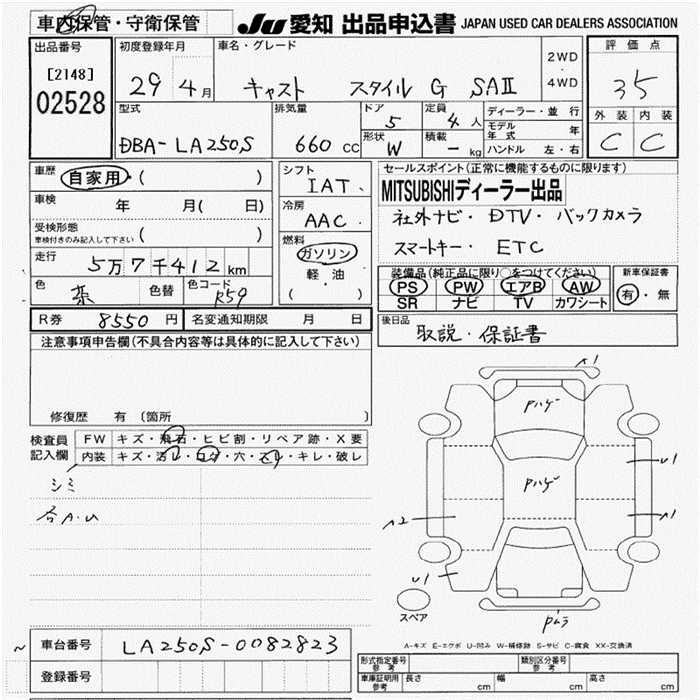 車内保管・守衛保管
JU 愛知 出品申込書 JAPAN USED CAR DEALERS ASSOCIATION
出品番号
[2148]
02528
初度登録年月
29年4月
車名・グレード
キャスト スタイル G SAⅡ
2WD
・
4WD
評価点
35
外装 内装
C C
型式
DBA-LA250S
排気量
660 cc
ドア
5
形状
W
定員
4人
積載
- kg
ディーラー・並行
モデル年式 年
ハンドル 左・右
車歴
自家用・( )
車検 年 月( 日)
受検形態
車検付きのみ記入して下さい ( )
走行
5万7千412km
色
茶
色替
色コード
R59
シフト
IAT
冷房
AAC
燃料
ガソリン
・
軽・油
( )
セールスポイント(正常に機能するものに限ります)
MITSUBISHIディーラー出品
社外ナビ・DTV・バックカメラ
スマートキー・ETC
装備品(純正品に限り○をつけてください)
PS PW エアB AW
SR ナビ TV カワシート
新車保証書
有・無
R券 8550円
名変通知期限 月 日
後日品
取説・保証書
注意事項申告欄(不具合内容等は具体的に記入して下さい)
修復歴 有〔箇所
検査員記入欄
FW キズ・飛石・ヒビ割・リペア跡・X要
内装 キズ・汚レ・コゲ・穴・スレ・キレ・破レ
シミ
各A.U
A1
Pハゲ
Pハゲ
U1
A1
A2
U1
Pムラ
スペア
A-キズ E-エクボ U-凹み W-補修跡 S-サビ C-腐食 XX-交換済
車台番号 LA250S-0082823
登録番号
形式指定番号
参考
類別区分番号
参考
車庫証明用
参考
長さ cm
幅 cm
高さ cm